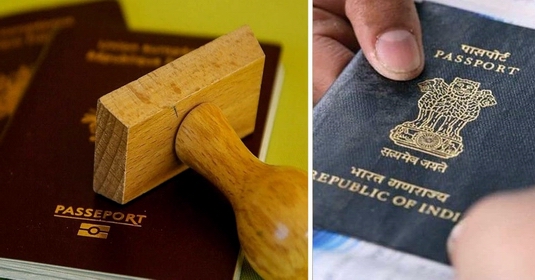 PASSEPORT
पासपोर्ट
PASSPORT
सत्यमेव जयते
भारत गणराज्य
REPUBLIC OF INDI